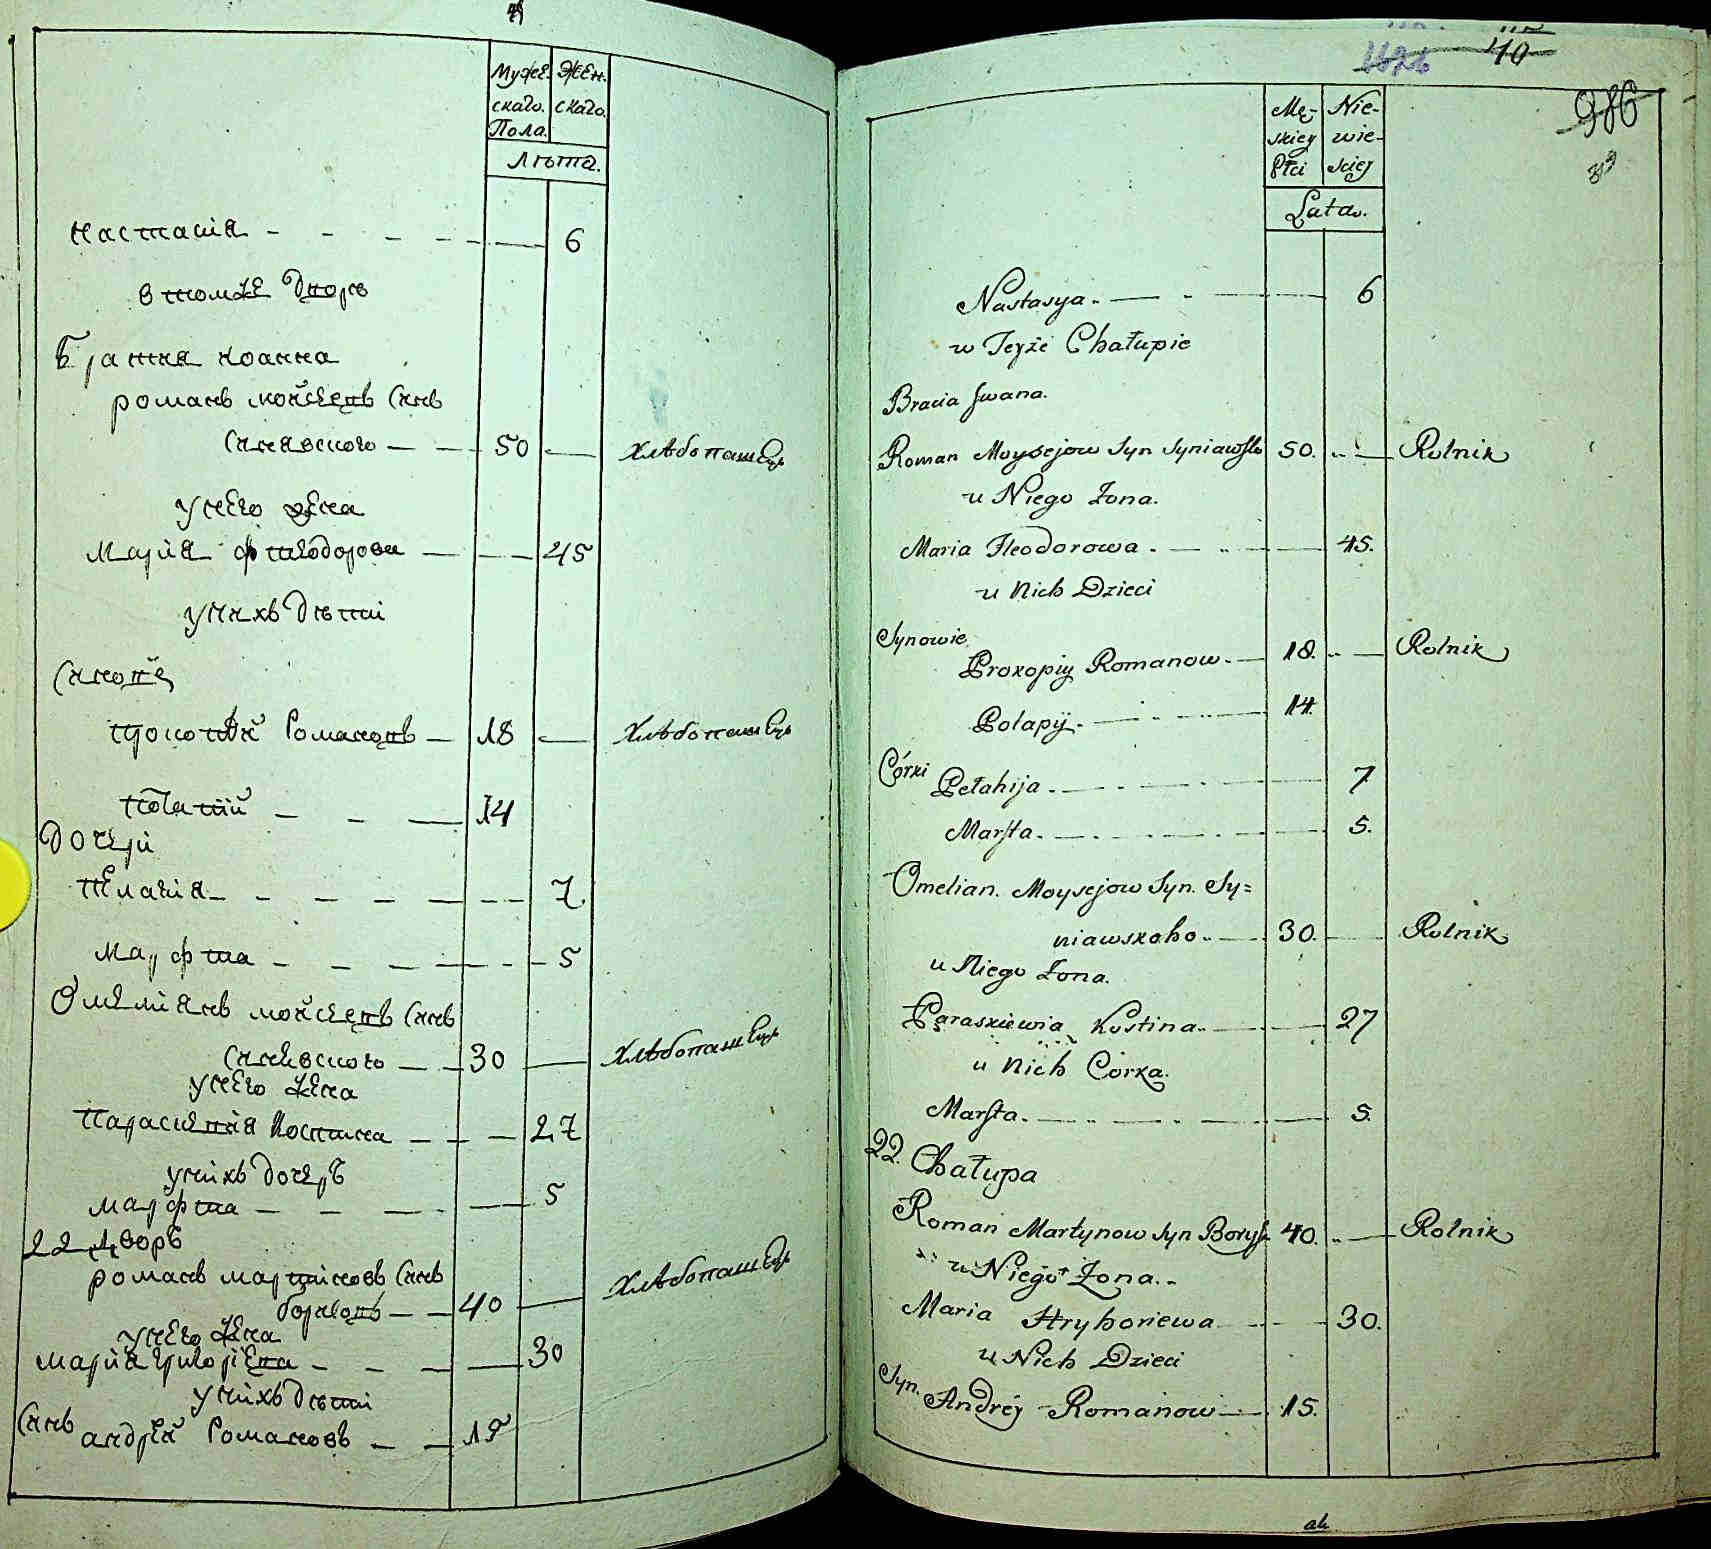 Муже- Жен-
скаго. скаго.
Пола.
Лѣта.
Настасія 6
В томже Дворѣ
Братия Иоанна
Романъ Мойсеевъ Синъ
Синявского 50 Хлѣбопашецъ
у него жена
Марія Фтеодорова 45
у нихъ Дѣти
Синове
Прокопій Романовъ 18 Хлѣбопашецъ
Потапій 14
Дочери
Пелагія 7
Марфта 5
Омеліянъ Мойсеевъ Синъ
Синявского 30 Хлѣбопашецъ
у него жена
Параскевія Костина 27
у нихъ дочеръ
Марфта 5
22 Дворъ
Романъ Мартиновъ Синъ
40 Хлѣбопашецъ
у него жена
Марія Григоріева 30
у нихъ Дѣти
Синъ Андрей Романовъ 15
40
986
Mę- Nie-
skiey wie-
Płci skięj
Lata.
Nastasya. 6
w Teyże Chałupie
Bracia Jwana.
Roman Moysejow Syn Syniawsko 50. Rolnik
u Niego Żona.
Maria Fteodorowa. 45.
u Nich Dzieci
Synowie
Prokopiy Romanow. 18. Rolnik
Potapij. 14.
Córki Pełahija. 7
Marfta. 5.
Omelian. Moysejow Syn. Sy=
niawskoho 30. Rolnik
u Niego Żona.
Paraskiewia Kostina. 27
u Nich Córka.
Marfta. 5.
22. Chałupa
Roman Martynow Syn Borys. 40. Rolnik
u Niego Żona.
Maria Hryhoriewa 30.
u Nich Dzieci
Syn. Andréy Romanow 15.